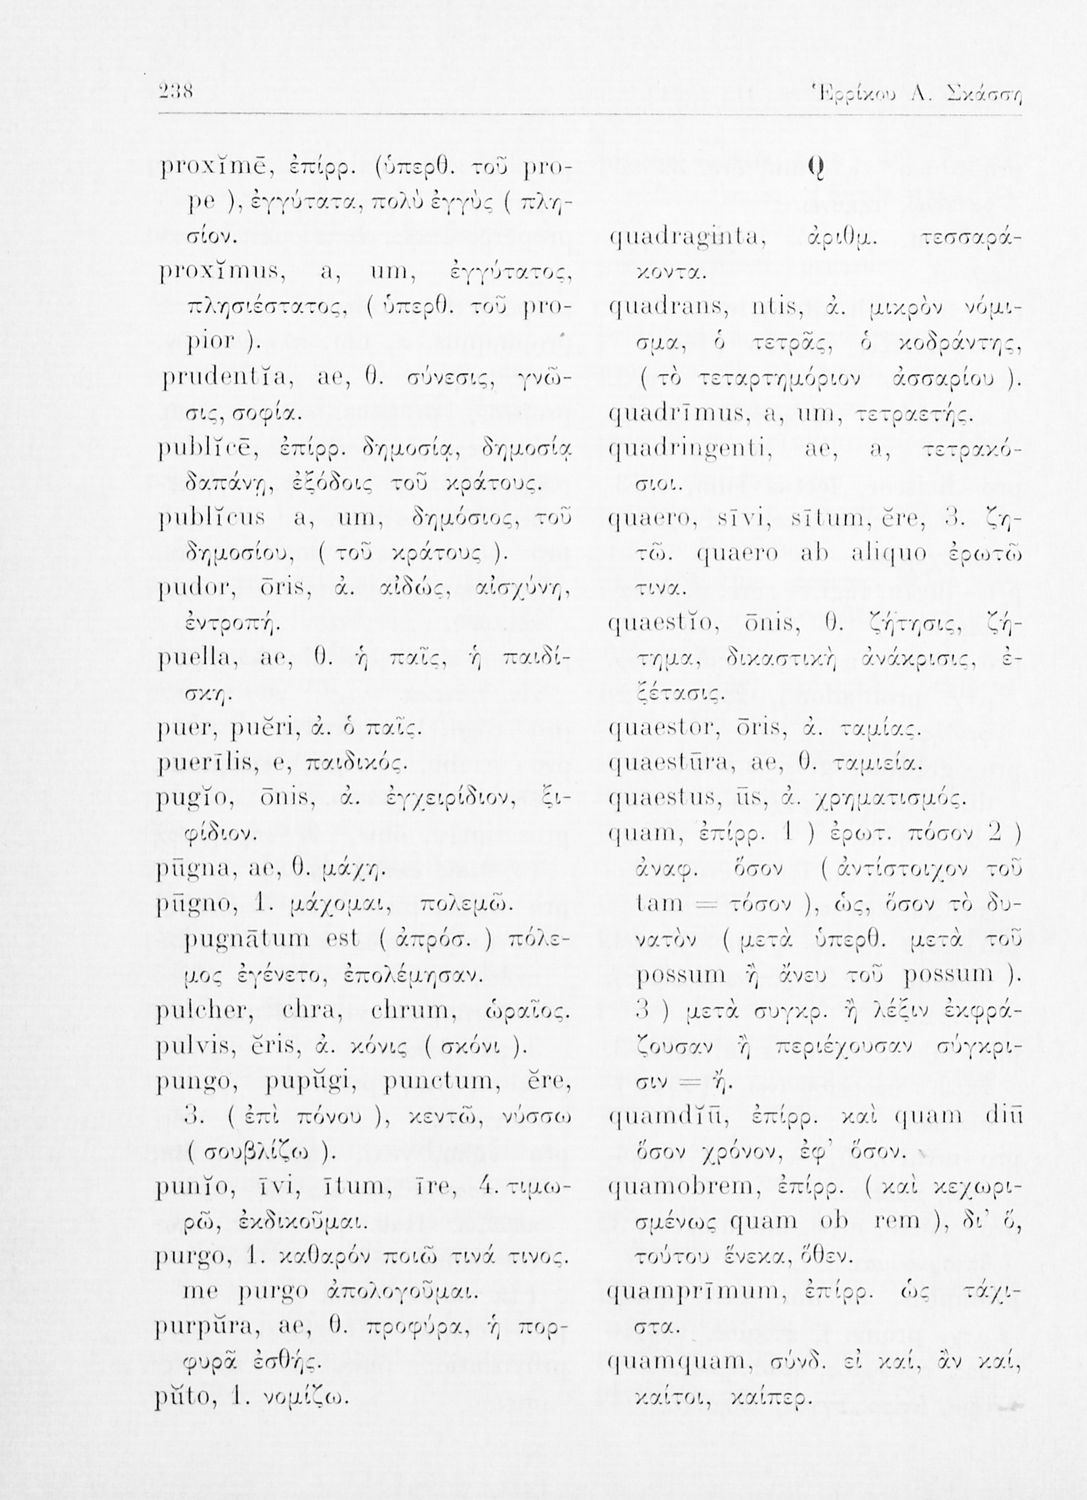 238
Ἑρρίκου Α. Σκάσση
proxĭmē, ἐπίρρ. (ὑπερθ. τοῦ pro-
pe ), ἐγγύτατα, πολὺ ἐγγὺς ( πλη-
σίον.
proxĭmus, a, um, ἐγγύτατος,
πλησιέστατος, ( ὑπερθ. τοῦ pro-
pior ).
prudentĭa, ae, θ. σύνεσις, γνῶ-
σις, σοφία.
publĭcē, ἐπίρρ. δημοσίᾳ, δημοσίᾳ
δαπάνῃ, ἐξόδοις τοῦ κράτους.
publĭcus a, um, δημόσιος, τοῦ
δημοσίου, ( τοῦ κράτους ).
pudor, ōris, ἀ. αἰδώς, αἰσχύνη,
ἐντροπή.
puella, ae, θ. ἡ παῖς, ἡ παιδί-
σκη.
puer, puĕri, ἀ. ὁ παῖς.
puerīlis, e, παιδικός.
pugĭo, ōnis, ἀ. ἐγχειρίδιον, ξι-
φίδιον.
pūgna, ae, θ. μάχη.
pūgno, 1. μάχομαι, πολεμῶ.
pugnātum est ( ἀπρόσ. ) πόλε-
μος ἐγένετο, ἐπολέμησαν.
pulcher, chra, chrum, ὡραῖος.
pulvis, ĕris, ἀ. κόνις ( σκόνι ).
pungo, pupŭgi, punctum, ĕre,
3. ( ἐπὶ πόνου ), κεντῶ, νύσσω
( σουβλίζω ).
punĭo, īvi, ītum, īre, 4. τιμω-
ρῶ, ἐκδικοῦμαι.
purgo, 1. καθαρόν ποιῶ τινά τινος.
me purgo ἀπολογοῦμαι.
purpŭra, ae, θ. προφύρα, ἡ πορ-
φυρᾶ ἐσθής.
pŭto, 1. νομίζω.
Q
quadraginta, ἀριθμ. τεσσαρά-
κοντα.
quadrans, ntis, ἀ. μικρὸν νόμι-
σμα, ὁ τετρᾶς, ὁ κοδράντης,
( τὸ τεταρτημόριον ἀσσαρίου ).
quadrīmus, a, um, τετραετής.
quadringenti, ae, a, τετρακό-
σιοι.
quaero, sīvi, sītum, ĕre, 3. ζη-
τῶ. quaero ab aliquo ἐρωτῶ
τινα.
quaestĭo, ōnis, θ. ζήτησις, ζή-
τημα, δικαστικὴ ἀνάκρισις, ἐ-
ξέτασις.
quaestor, ōris, ἀ. ταμίας.
quaestūra, ae, θ. ταμιεία.
quaestus, ūs, ἀ. χρηματισμός.
quam, ἐπίρρ. 1 ) ἐρωτ. πόσον 2 )
ἀναφ. ὅσον ( ἀντίστοιχον τοῦ
tam = τόσον ), ὡς, ὅσον τὸ δυ-
νατὸν ( μετὰ ὑπερθ. μετὰ τοῦ
possum ἢ ἄνευ τοῦ possum ).
3 ) μετὰ συγκρ. ἢ λέξιν ἐκφρά-
ζουσαν ἢ περιέχουσαν σύγκρι-
σιν = ἤ.
quamdĭū, ἐπίρρ. καὶ quam diū
ὅσον χρόνον, ἐφ᾽ ὅσον.
quamobrem, ἐπίρρ. ( καὶ κεχωρι-
σμένως quam ob rem ), δι᾽ ὅ,
τούτου ἕνεκα, ὅθεν.
quamprīmum, ἐπίρρ. ὡς τάχι-
στα.
quamquam, σύνδ. εἰ καί, ἂν καί,
καίτοι, καίπερ.